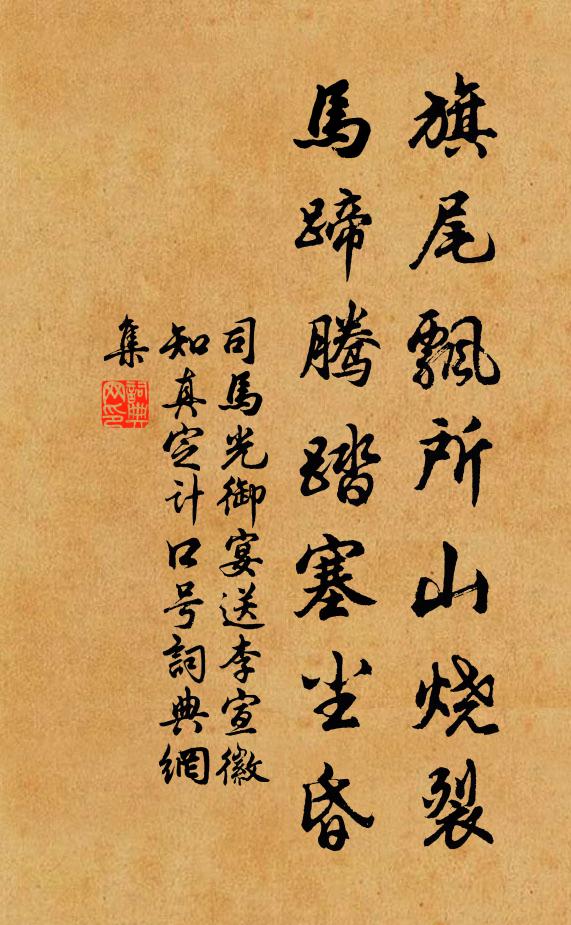 旗尾飄所山烧裂
馬蹄騰踏塞尘昏
司馬光御宴送李宣徽
知真定计口号詞典網
集
詞典网印